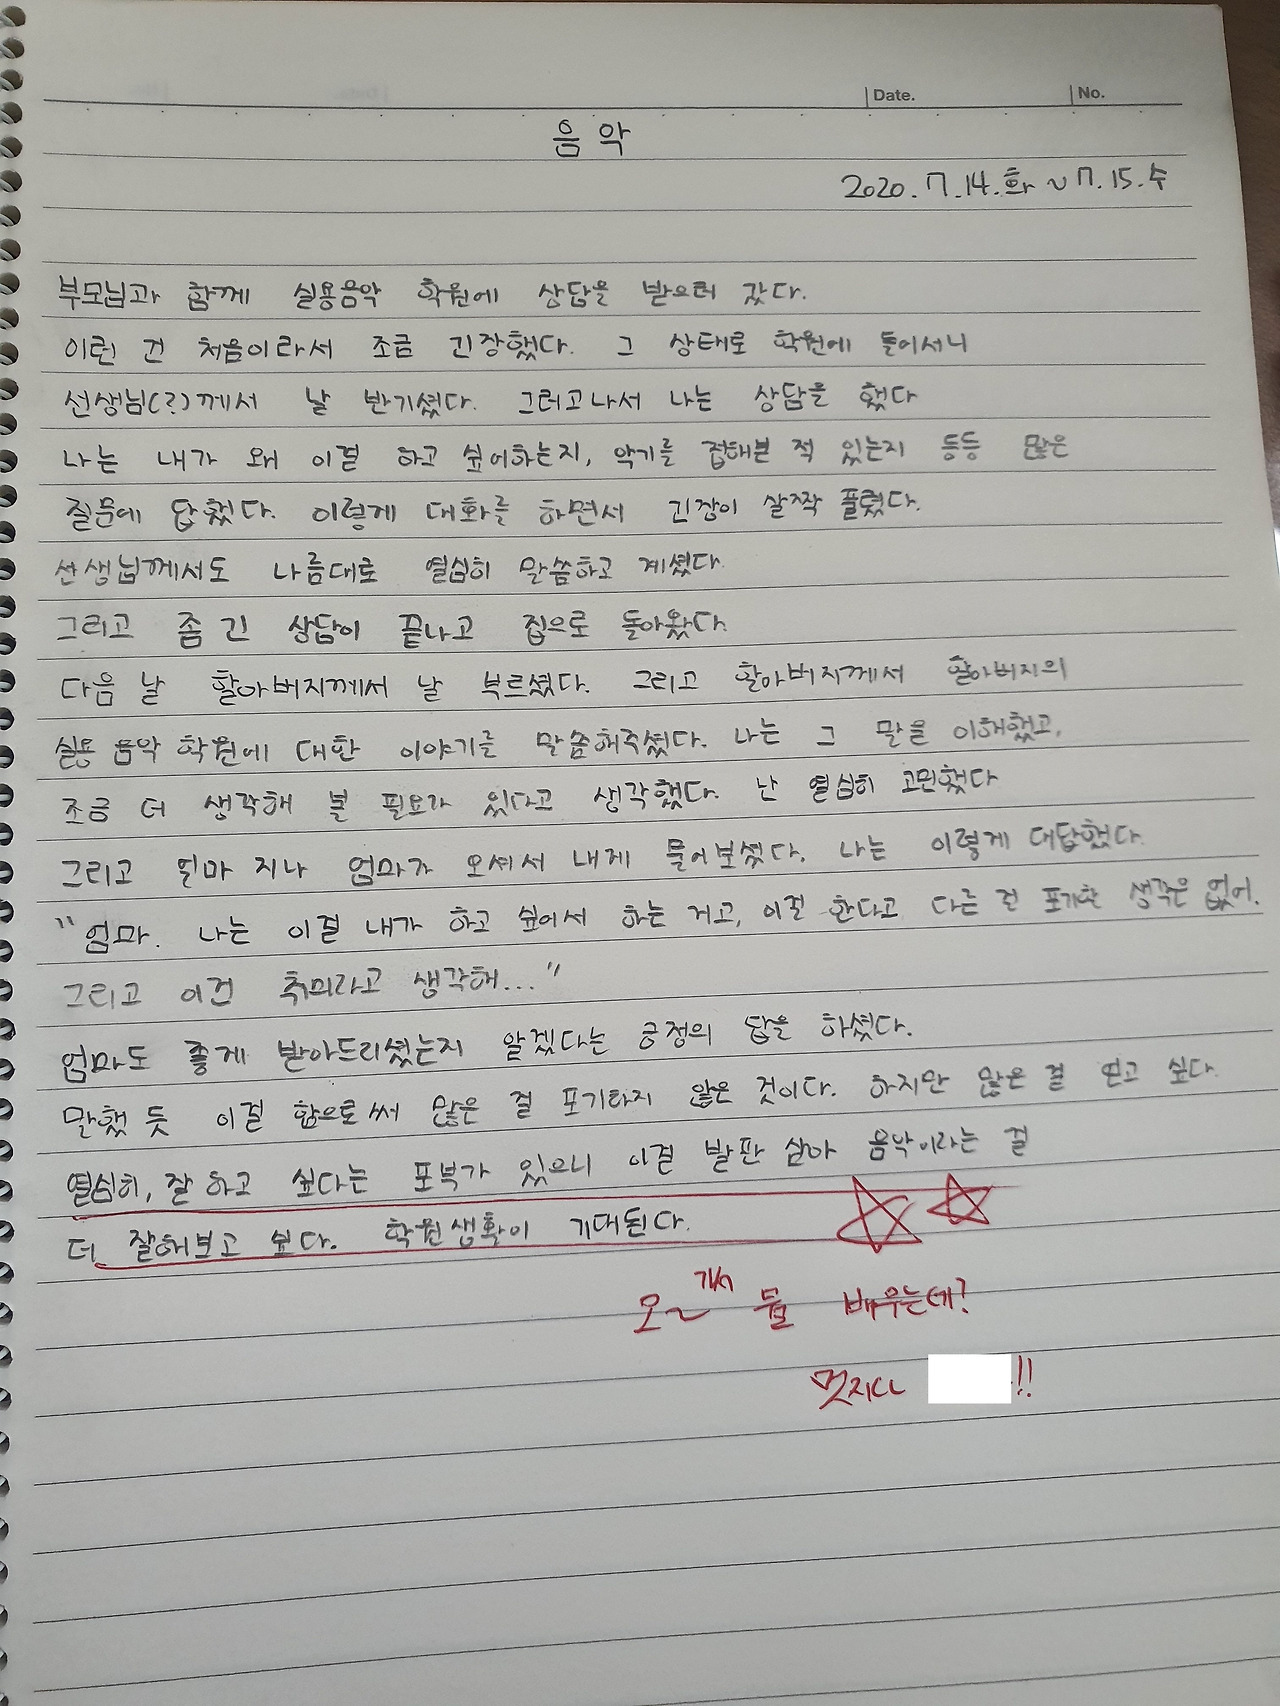 Date.
No.
음악
2020. 7. 14. 화 ~ 7. 15. 수
부모님과 함께 실용음악 학원에 상담을 받으러 갔다.
이런 건 처음이라서 조금 긴장했다. 그 상태로 학원에 들어서니
선생님(?)께서 날 반기셨다. 그러고나서 나는 상담을 했다
나는 내가 왜 이걸 하고 싶어하는지, 악기를 접해본 적 있는지 등등 많은
질문에 답했다. 이렇게 대화를 하면서 긴장이 살짝 풀렸다.
선생님께서도 나름대로 열심히 말씀하고 계셨다.
그리고 좀 긴 상담이 끝나고 집으로 돌아왔다.
다음 날 할아버지께서 날 부르셨다. 그리고 할아버지께서 할아버지의
실용 음악 학원에 대한 이야기를 말씀해주셨다. 나는 그 말을 이해했고,
조금 더 생각해 볼 필요가 있다고 생각했다. 난 열심히 고민했다
그리고 얼마 지나 엄마가 오셔서 내게 물어보셨다. 나는 이렇게 대답했다.
"엄마. 나는 이걸 내가 하고 싶어서 하는 거고, 이걸 한다고 다른 걸 포기할 생각은 없어.
그리고 이건 취미라고 생각해..."
엄마도 좋게 받아드리셨는지 알겠다는 긍정의 답을 하셨다.
말했 듯 이걸 함으로써 많은 걸 포기하지 않은 것이다. 하지만 많은 걸 얻고 싶다.
열심히, 잘 하고 싶다는 포부가 있으니 이걸 발판 삼아 음악이라는 걸
더 잘해보고 싶다. 학원생활이 기대된다.
오~ 가서 뭘 배우는데?
멋지다 !!